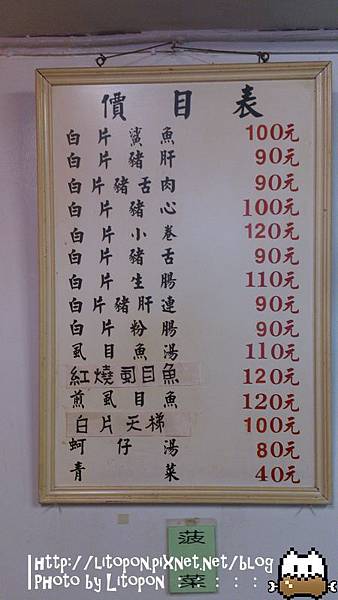 價目表
白片鯊魚 100元
白片豬肝 90元
白片豬舌肉 90元
白片豬心 100元
白片小卷 120元
白片豬舌 90元
白片生腸 110元
白片豬肝連 90元
白片粉腸 90元
虱目魚湯 110元
紅燒虱目魚 120元
煎虱目魚 120元
白片天梯 100元
蚵仔湯 80元
青菜 40元
菠菜
Http://Litopon.pixnet.net/blog
Photo by Litopon : : : : : :